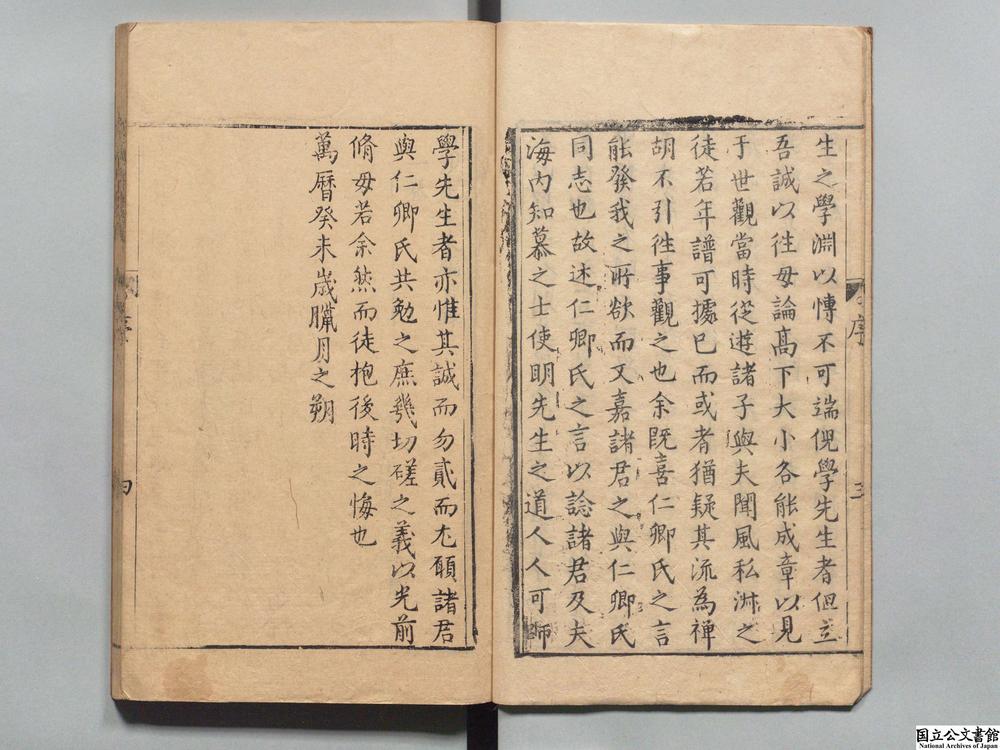 生之學淵以慱不可端倪學先生者但立
吾誠以徃毋論高下大小各能成章以見
于世觀當時從遊諸子與夫聞風私淑之
徒若年譜可據已而或者猶疑其流為禪
胡不引徃事觀之也余既喜仁卿氏之言
能發我之所欲而又嘉諸君之與仁卿氏
同志也故述仁卿氏之言以諗諸君及夫
海內知慕之士使明先生之道人人可師
序
三
學先生者亦惟其誠而勿貳而尤願諸君
與仁卿氏共勉之庶幾切磋之義以光前
脩毋若余然而徒抱後時之悔也
萬曆癸未歲臘月之朔
序
四
国立公文書館
National Archives of Japan